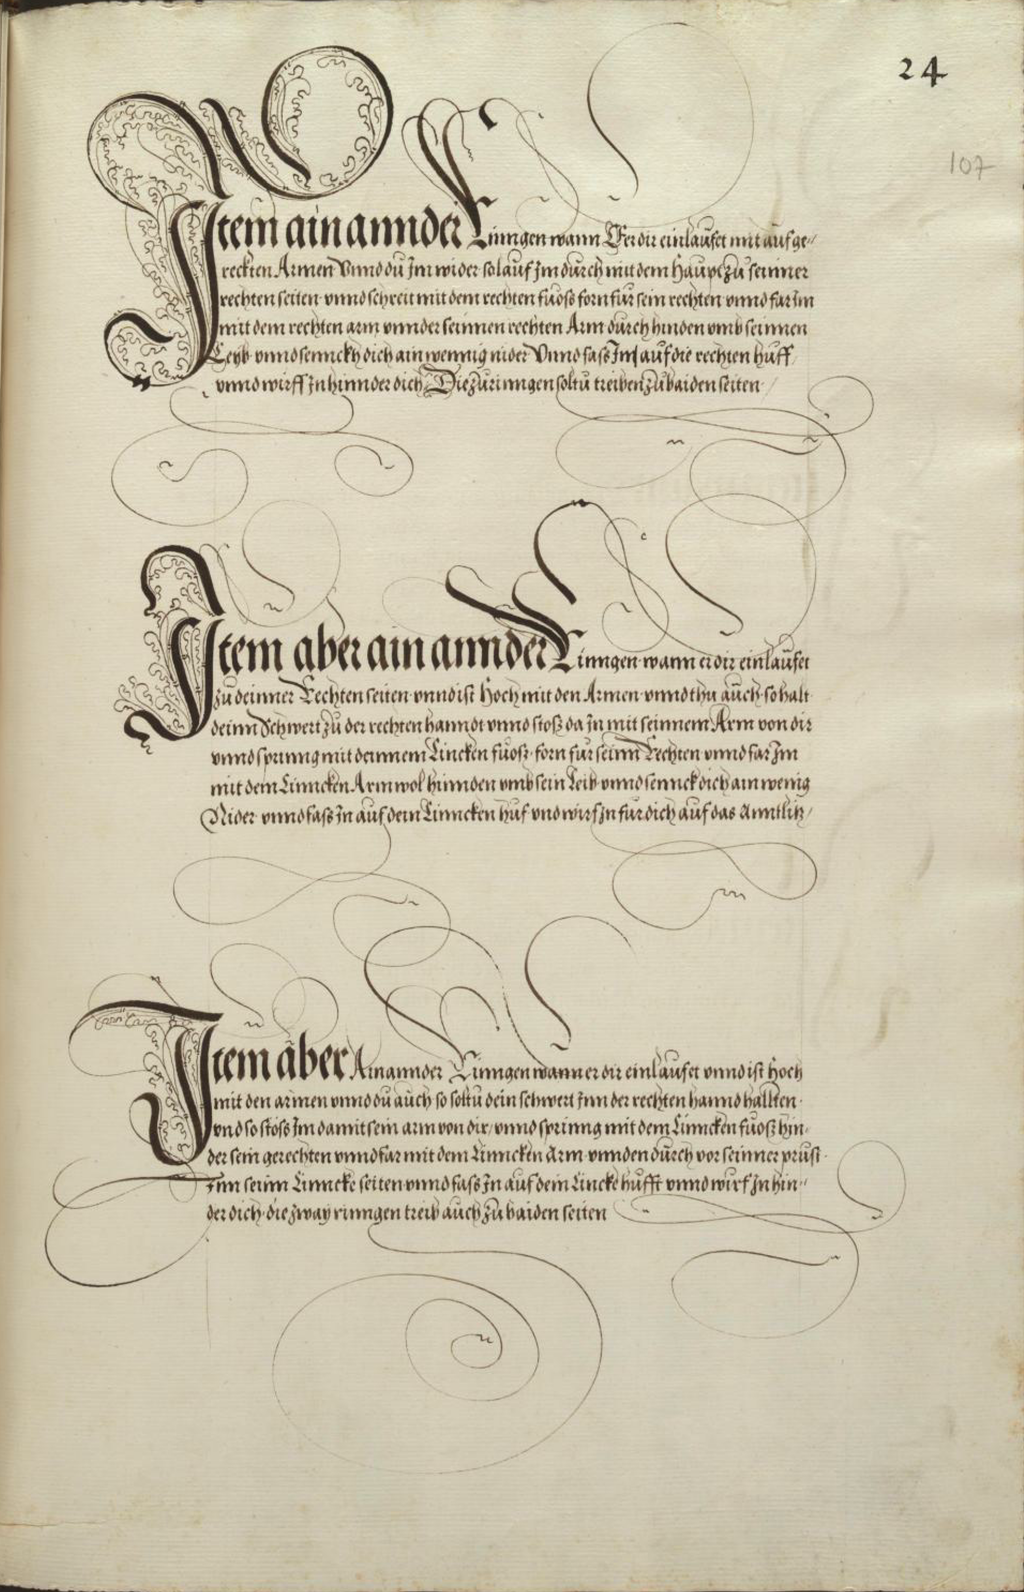 24
107
Item ain annder Rinngen wann Er dir einlaufet mit aufge-
reckten Armen Unnd du Im wider so lauf Im durch mit dem Haupt zu seinner
rechten seiten unnd schreit mit dem rechten fuoss forn fur sein rechten unnd far Im
mit dem rechten arm unnder seinnen rechten Arm durch hinden umb seinnen
Leyb unnd sennckh dich ain wennig nider Unnd fass Im auf die rechten huff
unnd wirff In hinnder dich Die zu rinngen soltu treiben zu baiden seiten
Item aber ain annder Rinngen wann er dir einlaufet
zu deinner Rechten seiten unnd ist Hoch mit den Armen unnd thu auch so halt
deinn Schwert zu der rechten hanndt unnd stoss da In mit seinnem Arm von dir
unnd sprinng mit deinnem Lincken fuoss forn fur seinn Rechten unnd far Im
mit dem Linncken Arm wol hinnden umb sein Leib unnd sennck dich ain wenig
Nider unnd fass In auf dein Linncken huf und wirf In fur dich auf das Anntlitz
Item aber Ain annder Rinngen wann er dir einlaufet unnd ist Hoch
mit den armen unnd du auch so soltu dein schwert Inn der rechten hannd hallten
unnd so stoss Im damit sein arm von dir unnd sprinng mit dem Linncken fuoss hin-
der sein gerechten unnd far mit dem Linncken Arm unnden durch vor seinner prust
Inn seinn Linncke seiten unnd fass In auf dein Lincke hufft unnd wirf In hin-
der dich die zway rinngen treib auch zu baiden seiten